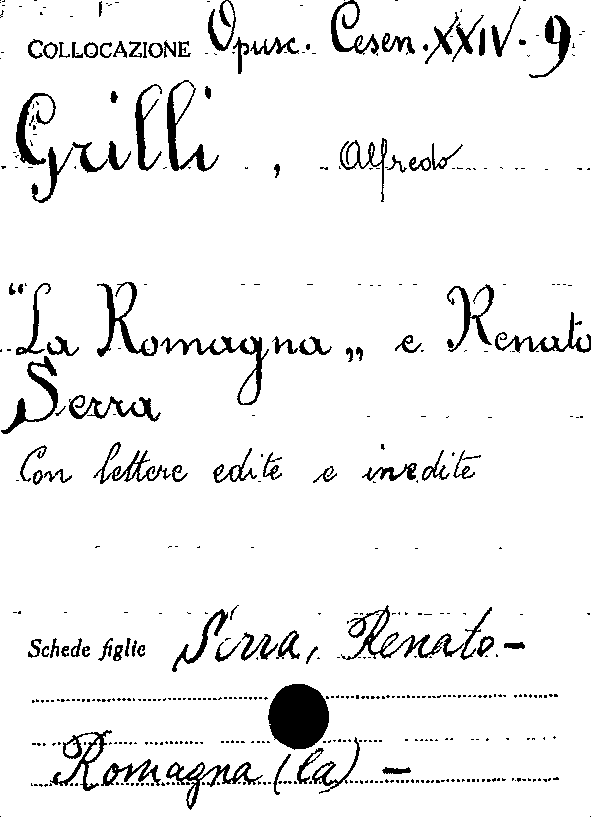 COLLOCAZIONE Opusc. Cesen. XXIV. 9
Grilli, Alfredo
"La Romagna„ e Renato
Serra
Con lettere edite e inedite
Schede figlie Serra, Renato -
Romagna (la) -